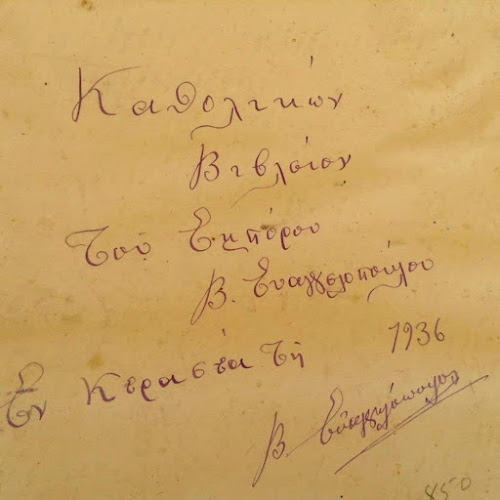 Καθολικών
Βιβλοίον
Του Εμπόρου
Β. Ευαγγελοπούλου
Εν Κεραστά τη 1936
Β. Ευαγγελόπουλος
850